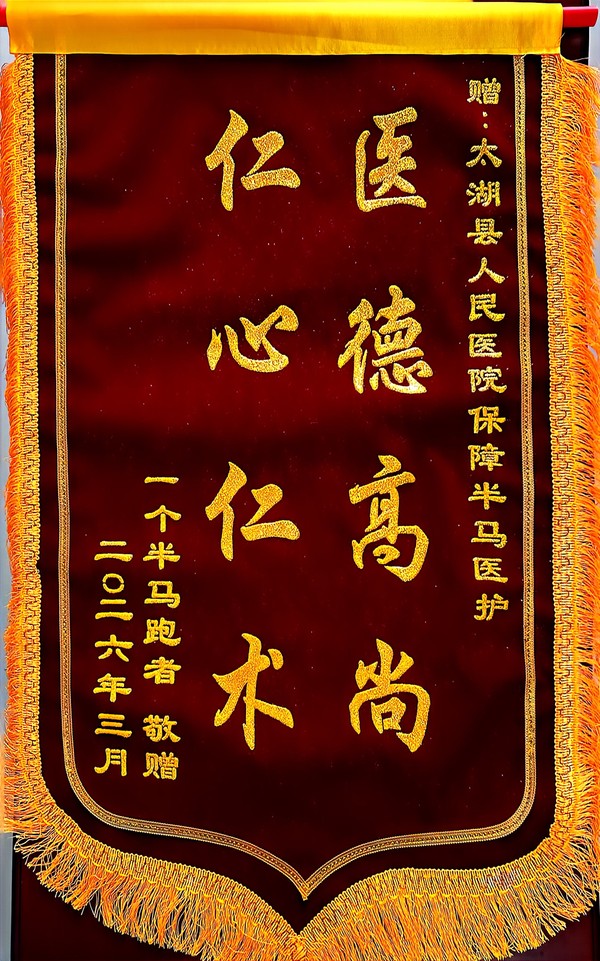 赠：太湖县人民医院保障半马医护
医德高尚
仁心仁术
一个半马跑者 敬赠
二〇二六年三月